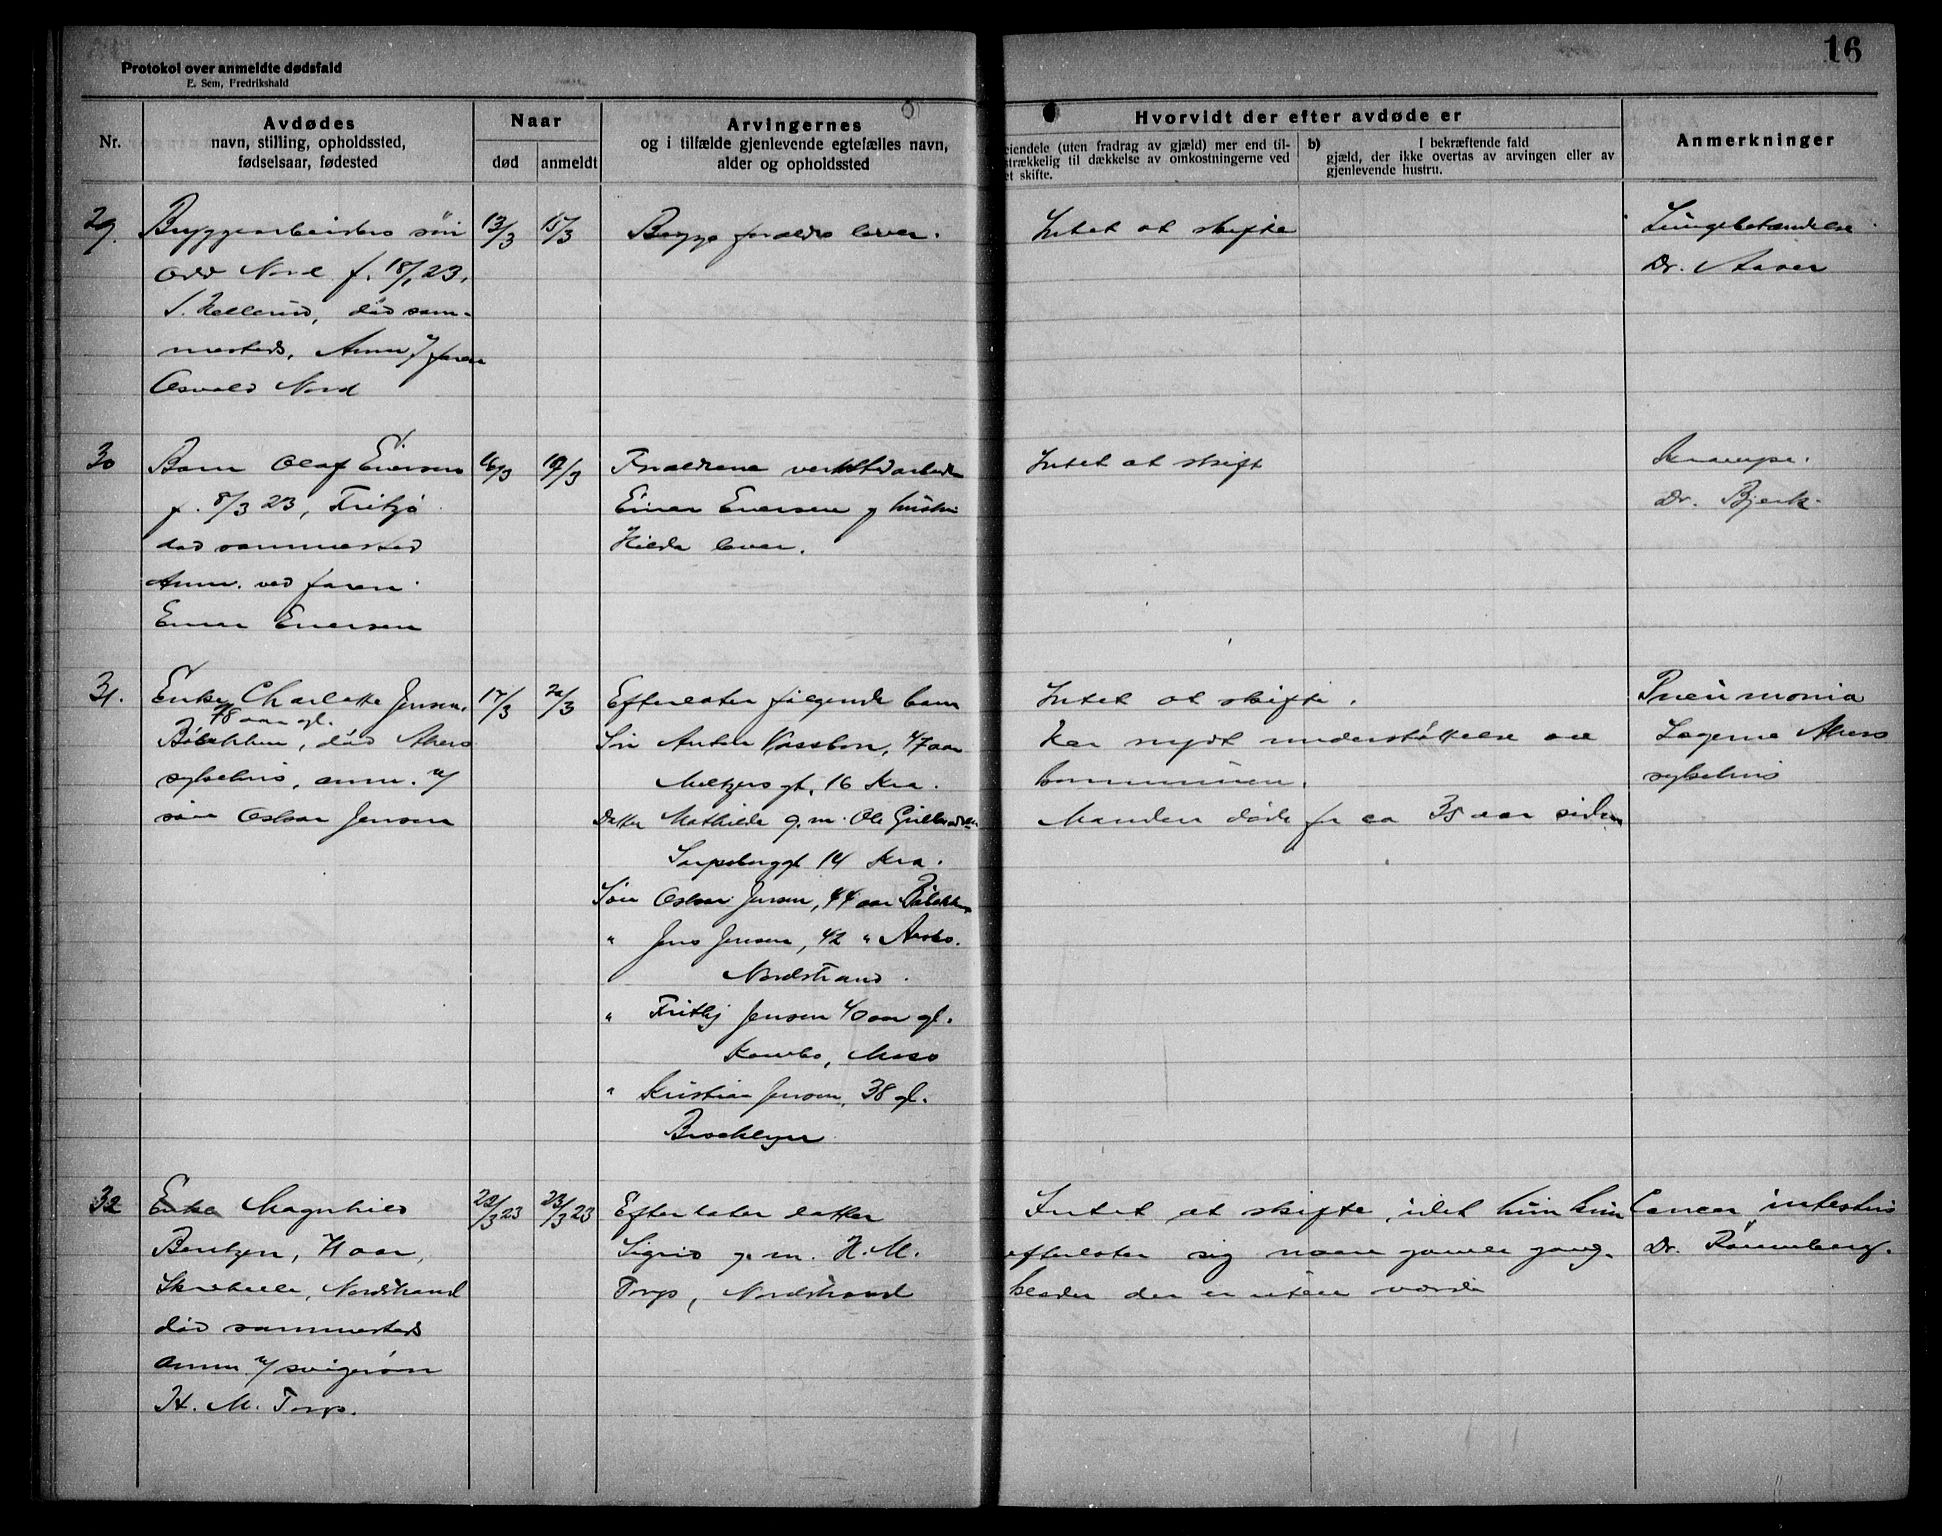 16
Protokol over anmeldte dødsfald
E. Sem, Fredrikshald
Nr.
Avdødes
navn, stilling, opholdssted,
fødselsaar, fødested
Naar
død
anmeldt
Arvingernes
og i tilfælde gjenlevende egtefælles navn,
alder og opholdssted
Hvorvidt der efter avdøde er
eiendele (uten fradrag av gjæld) mer end til-
strækkelig til dækkelse av omkostningerne ved
et skifte.
b) I bekræftende fald
gjæld, der ikke overtas av arvingen eller av
gjenlevende hustru.
Anmerkninger
29.
Bryggearbeiders søn
Odd Nord f. 18/1 23,
død sam-
mesteds, Anm. v/ faren
Osvald Nord
13/3
15/3
Begge foraldre lever.
Intet at skifte
Lungebetændelse
Dr.
30
Barn Olaf Enersen
f. 8/3 23,
død sammested
Anm. ved faren
Einar Enersen
16/3
19/3
Foraldrene verkstedarbeider
Einar Enersen og hustru
Hilda lever.
Intet at skift
Krampe.
Dr. Bjerk.
31.
Enke Charlotte Jensen,
78 aar gl.
Bålerkken, død Akers
sykehus, anm. v/
søn Oskar Jensen
17/3
20/3
Efterlater følgende barn
Søn Anton Vassbon, 47 aar
Meltzers gt. 16 Kra.
Datter Mathilde g. m. Ole Gulbrandsen
Sarpsborggt 14 Kra.
Søn Oskar Jensen, 44 aar
" Jens Jensen, 42 "
Nordstrand.
" Frithj Jensen 40 aar gl.
Kambo, Moss
" Kristian Jensen, 38 gl.
Brooklyn
Intet at skifte.
Har nydt understøttelse av
kommunen.
Manden døde for ca 35 aar siden
Pneumonia
Lægerne Akers
sykehus
32
Enke Magnhild
Bentzen,
Nordstrand
død sammesteds
anm v/ svigersøn
H. M. Torp.
22/3 23
23/3 23
Efterlater datter
Sigrid g. m. H. M.
Torp, Nordstrand
Intet at skifte, idet hun kun
efterlater sig noen gamle gang-
klæder der er uten værdi
Cancer intestin
Dr. Rønneberg.